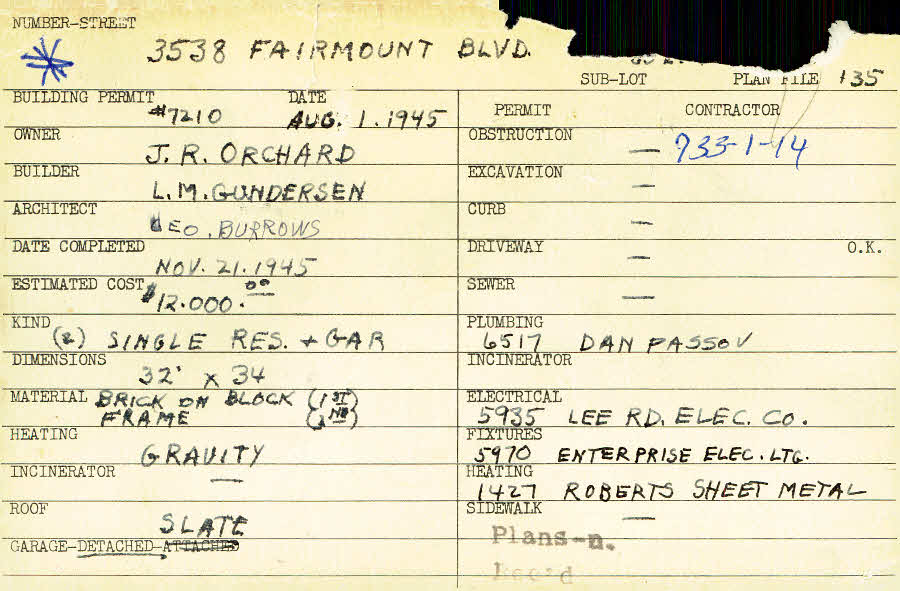 NUMBER-STREET
3538 FAIRMOUNT BLVD.
SUB-LOT PLAN FILE 135
BUILDING PERMIT #7210 DATE AUG. 1. 1945
OWNER J. R. ORCHARD
BUILDER L. M. GUNDERSEN
ARCHITECT GEO. BURROWS
DATE COMPLETED NOV. 21. 1945
ESTIMATED COST $12.000.00
KIND (2) SINGLE RES. + GAR
DIMENSIONS 32' x 34
MATERIAL BRICK ON BLOCK (1ST)
FRAME (2ND)
HEATING GRAVITY
INCINERATOR —
ROOF SLATE
GARAGE-DETACHED-ATTACHED
PERMIT CONTRACTOR
OBSTRUCTION — 733-1-14
EXCAVATION —
CURB —
DRIVEWAY — O.K.
SEWER —
PLUMBING 6517 DAN PASSOV
INCINERATOR
ELECTRICAL 5935 LEE RD. ELEC. CO.
FIXTURES 5970 ENTERPRISE ELEC. LTG.
HEATING 1427 ROBERTS SHEET METAL
SIDEWALK —
Plans-n.
Rec'd